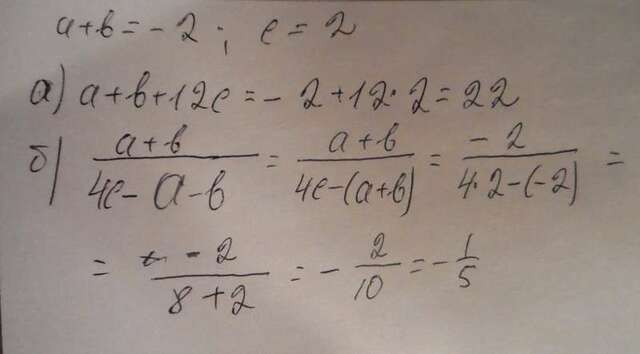 a+b=-2; c=2
а) a+b+12c=-2+12·2=22
б) (a+b)/(4c-a-b) = (a+b)/(4c-(a+b)) = (-2)/(4·2-(-2)) =
= (-2)/(8+2) = -2/10 = -1/5